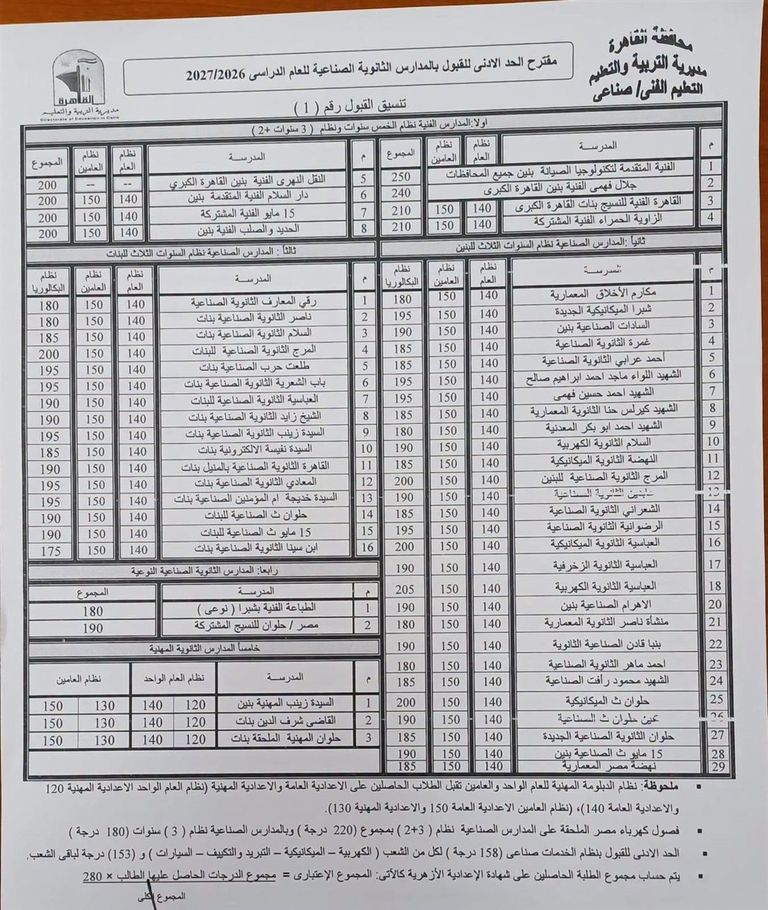 محافظة القاهرة
مديرية التربية والتعليم
التعليم الفنى/ صناعى
مقترح الحد الادنى للقبول بالمدارس الثانوية الصناعية للعام الدراسى 2027/2026
القاهرة
مديرية التربية والتعليم
Directorate of Education in Cairo
تنسيق القبول رقم ( 1 )
اولا:المدارس الفنية نظام الخمس سنوات ونظام ( 3 سنوات +2 )
م المدرســة نظام العام نظام العامين المجموع
1 الفنية المتقدمة لتكنولوجيا الصيانة بنين جميع المحافظات 250
2 جلال فهمى الفنية بنين القاهرة الكبرى 240
3 القاهرة الفنية للنسيج بنات القاهرة الكبرى 140 150 210
4 الزاوية الحمراء الفنية المشتركة 140 150 210
م المدرســة نظام العام نظام العامين المجموع
5 النقل النهرى الفنية بنين القاهرة الكبري -- -- 200
6 دار السلام الفنية المتقدمة بنين 140 150 200
7 15 مايو الفنية المشتركة 140 150 200
8 الحديد والصلب الفنية بنين 140 150 200
ثانياً: المدارس الصناعية نظام السنوات الثلاث للبنين
م المدرسة نظام العام نظام العامين نظام البكالوريا
1 مكارم الأخلاق المعمارية 140 150 180
2 شبرا الميكانيكية الجديدة 140 150 195
3 السادات الصناعية بنين 140 150 190
4 غمرة الثانوية الصناعية 140 150 185
5 أحمد عرابي الثانوية الصناعية 140 150 185
6 الشهيد اللواء ماجد احمد ابراهيم صالح 140 150 195
7 الشهيد احمد حسين فهمى 140 150 195
8 الشهيد كيرلس حنا الثانوية المعمارية 140 150 185
9 الشهيد احمد ابو بكر المعدنية 140 150 180
10 السلام الثانوية الكهربية 140 150 190
11 النهضة الثانوية الميكانيكية 140 150 185
12 المرج الثانوية الصناعية للبنين 140 150 200
13 الثانوية الصناعية 140 150 190
14 الشعراني الثانوية الصناعية 140 150 185
15 الرضوانية الثانوية الصناعية 140 150 195
16 العباسية الثانوية الميكانيكية 140 150 200
17 العباسية الثانوية الزخرفية 140 150 190
18 العباسية الثانوية الكهربية 140 150 205
20 الاهرام الصناعية بنين 140 150 190
21 منشأة ناصر الثانوية المعمارية 140 150 180
22 بنبا قادن الصناعية الثانوية 140 150 190
23 احمد ماهر الثانوية الصناعية 140 150 180
24 الشهيد محمود رأفت الصناعية 140 150 185
25 حلوان ث الميكانيكية 140 150 200
26 عين حلوان ث الصناعية 140 150 190
27 حلوان الثانوية الصناعية الجديدة 140 150 185
28 15 مايو ث الصناعية بنين 140 150 190
29 نهضة مصر المعمارية 140 150 185
ثالثاً : المدارس الصناعية نظام السنوات الثلاث للبنات
م المدرســة نظام العام نظام العامين نظام البكالوريا
1 رقي المعارف الثانوية الصناعية 140 150 180
2 ناصر الثانوية الصناعية بنات 140 150 180
3 السلام الثانوية الصناعية بنات 140 150 185
4 المرج الثانوية الصناعية للبنات 140 150 200
5 طلعت حرب الصناعية بنات 140 150 195
6 باب الشعرية الثانوية الصناعية بنات 140 150 195
7 العباسية الثانوية الصناعية للبنات 140 150 190
8 الشيخ زايد الثانوية الصناعية بنات 140 150 190
9 السيدة زينب الثانوية الصناعية بنات 140 150 195
10 السيدة نفيسة الالكترونية بنات 140 150 185
11 القاهرة الثانوية الصناعية بالمنيل بنات 140 150 190
12 المعادي الثانوية الصناعية بنات 140 150 195
13 السيدة خديجة ام المؤمنين الصناعية بنات 140 150 195
14 حلوان ث الصناعية للبنات 140 150 190
15 15 مايو ث الصناعية للبنات 140 150 190
16 ابن سينا الثانوية الصناعية بنات 140 150 175
رابعا: المدارس الثانوية الصناعية النوعية
م المدرســة المجموع
1 الطباعة الفنية بشبرا ( نوعى ) 180
2 مصر / حلوان للنسيج المشتركة 190
خامساً المدارس الثانوية المهنية
م المدرســة نظام العام الواحد نظام العامين
1 السيدة زينب المهنية بنين 120 140 130 150
2 القاضى شرف الدين بنات 120 140 130 150
3 حلوان المهنية الملحقة بنات 120 140 130 150
ملحوظة: نظام الدبلومة المهنية للعام الواحد والعامين تقبل الطلاب الحاصلين على الاعدادية العامة والاعدادية المهنية (نظام العام الواحد الاعدادية المهنية 120
والاعدادية العامة 140)، (نظام العامين الاعدادية العامة 150 والاعدادية المهنية 130).
فصول كهرباء مصر الملحقة على المدارس الصناعية نظام ( 3+2 ) بمجموع (220 درجة ) وبالمدارس الصناعية نظام ( 3 ) سنوات (180 درجة )
الحد الادنى للقبول بنظام الخدمات صناعى (158 درجة ) لكل من الشعب ( الكهربية – الميكانيكية – التبريد والتكييف – السيارات ) و (153) درجة لباقى الشعب.
يتم حساب مجموع الطلبة الحاصلين على شهادة الإعدادية الأزهرية كالأتى: المجموع الإعتبارى = مجموع الدرجات الحاصل عليها الطالب × 280
المجموع الكلى